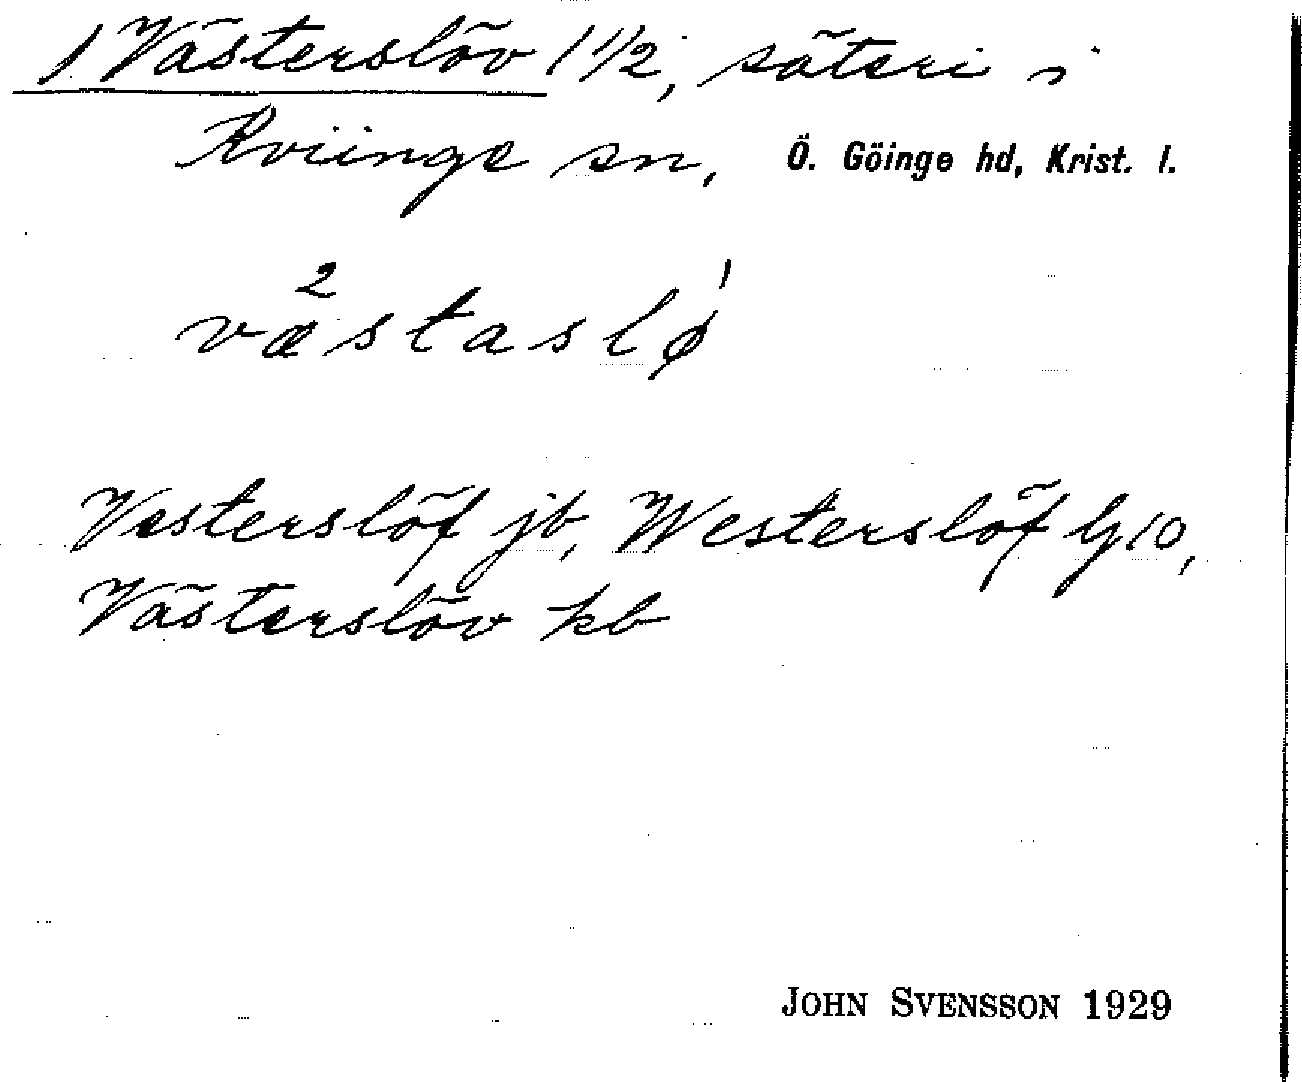 1 Västerslöv 1 1/2, säteri i
Kviinge sn, Ö. Göinge hd, Krist. l.
væ²staslø¹
Vesterslöf jb, Westerslöf G 10,
Västerslöv kb
JOHN SVENSSON 1929